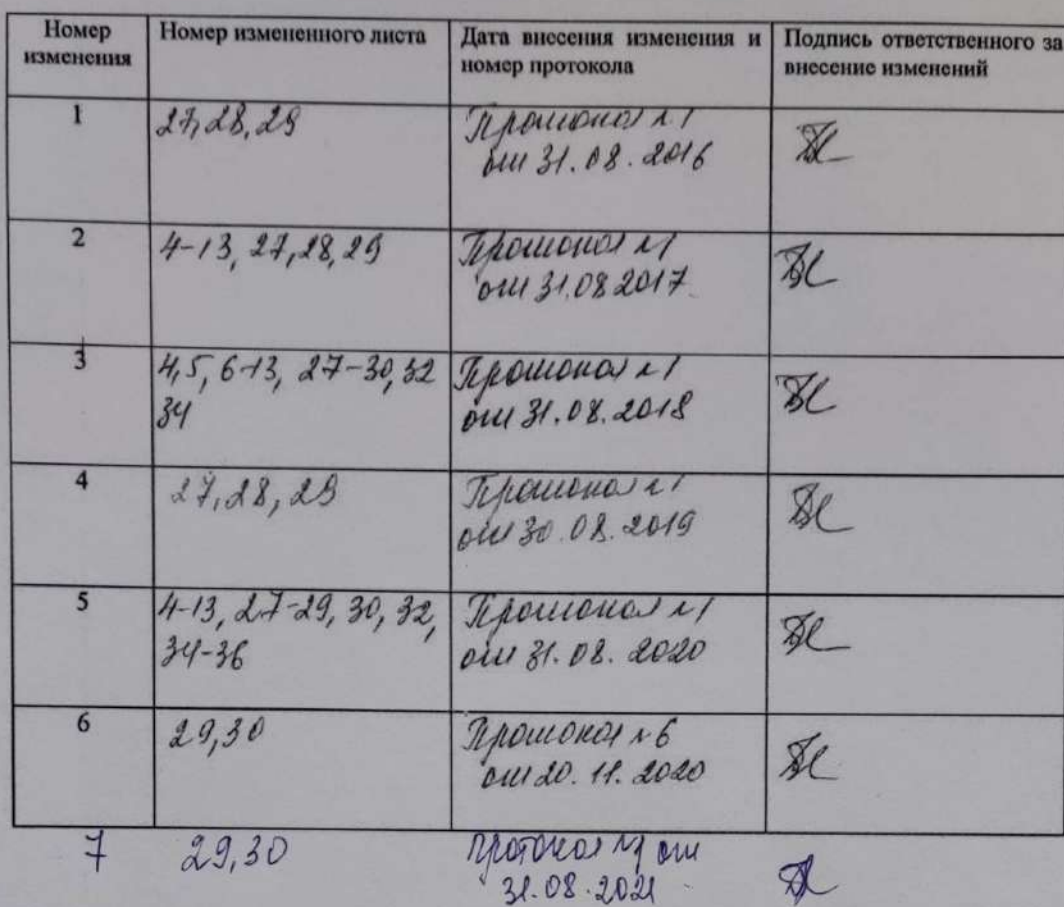 Номер изменения
Номер измененного листа
Дата внесения изменения и номер протокола
Подпись ответственного за внесение изменений
1
27, 28, 29
Протокол №1
от 31.08.2016
2
4-13, 27, 28, 29
Протокол №1
от 31.08.2017
3
4,5, 6-13, 27-30, 32
34
Протокол №1
от 31.08.2018
4
27, 28, 29
Протокол №1
от 30.08.2019
5
4-13, 27-29, 30, 32,
34-36
Протокол №1
от 31.08.2020
6
29,30
Протокол №6
от 20.11.2020
7
29,30
протокол №1 от
31.08.2021